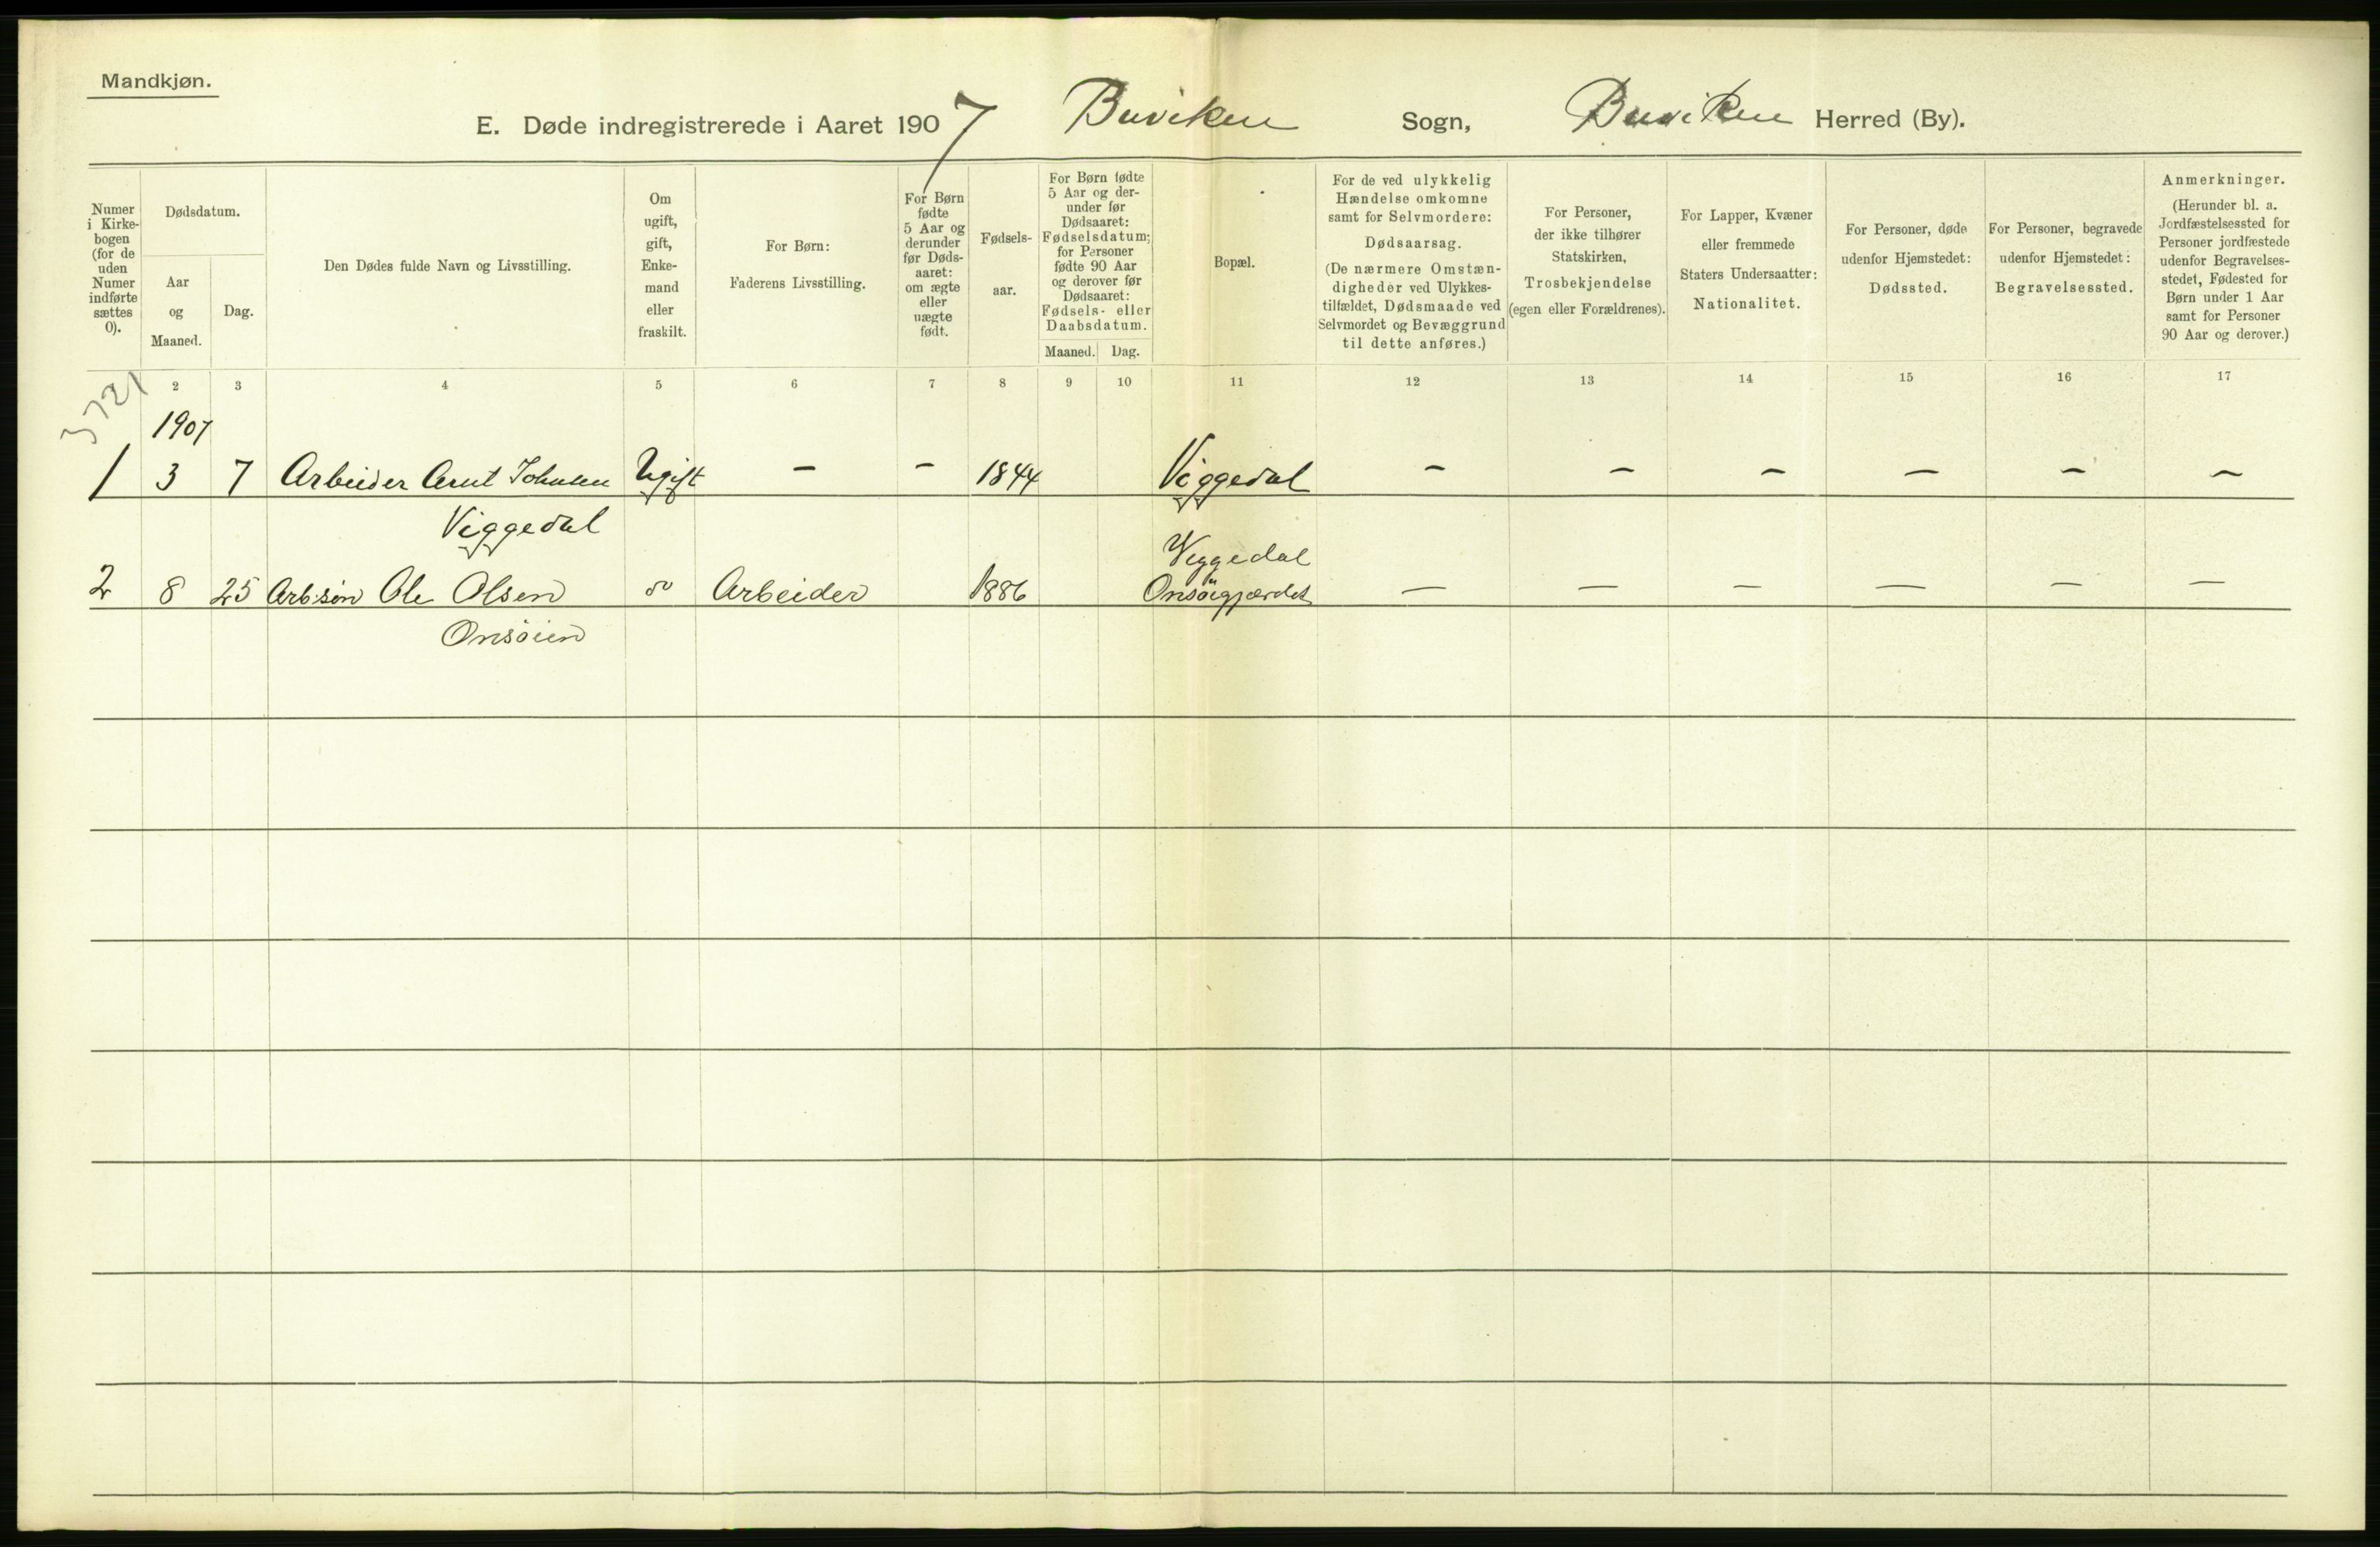 Mandkjøn.
E. Døde indregistrerede i Aaret 1907 Buviken Sogn, Buviken Herred (By).
Numer
i Kirke-
bogen
(for de
uden
Numer
indførte
sættes
0).
Dødsdatum.
Aar
og
Maaned.
Dag.
Den Dødes fulde Navn og Livsstilling.
Om
ugift,
gift,
Enke-
mand
eller
fraskilt.
For Børn:
Faderens Livsstilling.
For Børn
fødte
5 Aar og
derunder
før Døds-
aaret:
om ægte
eller
uægte
født.
Fødsels-
aar.
For Børn fødte
5 Aar og der-
under før
Dødsaaret:
Fødselsdatum;
for Personer
fødte 90 Aar
og derover før
Dødsaaret:
Fødsels- eller
Daabsdatum.
Maaned. Dag.
Bopæl.
For de ved ulykkelig
Hændelse omkomne
samt for Selvmordere:
Dødsaarsag.
(De nærmere Omstæn-
digheder ved Ulykkes-
tilfældet, Dødsmaade ved
Selvmordet og Bevæggrund
til dette anføres.)
For Personer,
der ikke tilhører
Statskirken,
Trosbekjendelse
(egen eller Forældrenes).
For Lapper, Kvæner
eller fremmede
Staters Undersaatter:
Nationalitet.
For Personer, døde
udenfor Hjemstedet:
Dødssted.
For Personer, begravede
udenfor Hjemstedet:
Begravelsessted.
Anmerkninger.
(Herunder bl. a.
Jordfæstelsessted for
Personer jordfæstede
udenfor Begravelses-
stedet, Fødested for
Børn under 1 Aar
samt for Personer
90 Aar og derover.)
2 3 4 5 6 7 8 9 10 11 12 13 14 15 16 17
3721
1907
1 3 7 Arbeider Arnt Johnsen Ugift - - 1844 Viggedal - - - - - -
Viggedal
Viggedal
2 8 25 Arb.søn Ole Olsen do Arbeider 1886 Onsøigjærdet - - - - - -
Onsøien